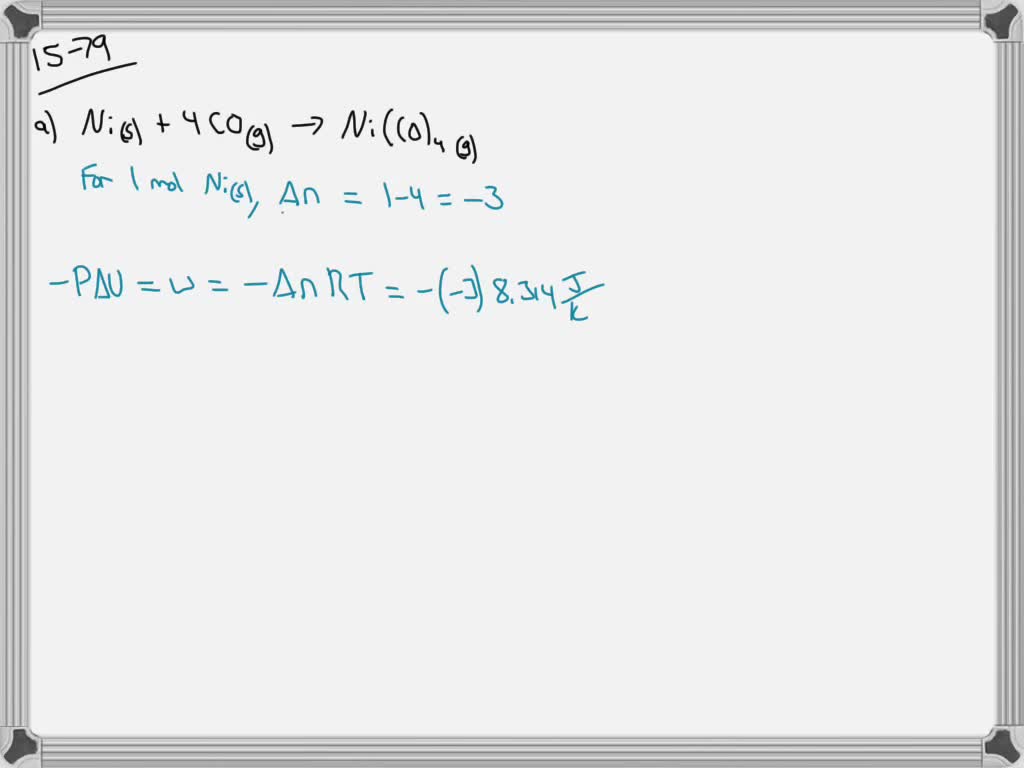 15-79
a) Ni(s) + 4CO(g) → Ni(CO)4(g)
For 1 mol Ni(s), Δn = 1-4 = -3
-PΔV = w = -ΔnRT = -(-3) 8.314 J/K